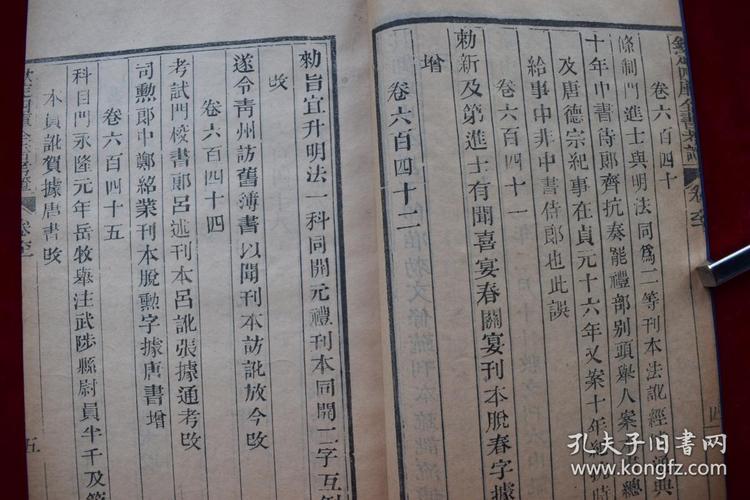 欽定四庫全書考證
卷六百四十
條制門進士與明法同為二等刊本法訛經
十年中書侍郎齊抗奏罷禮部别頭舉人案
及唐德宗紀事在貞元十六年又案十年
給事中非中書侍郎也此誤
卷六百四十一
勅新及第進士有聞喜宴春關宴刊本脱春字據
增
卷六百四十二
勅旨宜升明法一科同開元禮刊本同開二字互
攺
遂令青州訪舊簿書以聞刊本訪訛放今攺
卷六百四十四
考試門校書郎呂述刊本呂訛張據通考攺
司勲郎中鄭絪業刊本脱勲字據唐書增
卷六百四十五
科目門永隆元年岳牧舉注武陟縣尉員半千及第
本員訛賀據唐書攺
欽定四庫全書考證
五
孔夫子旧书网
www.kongfz.com